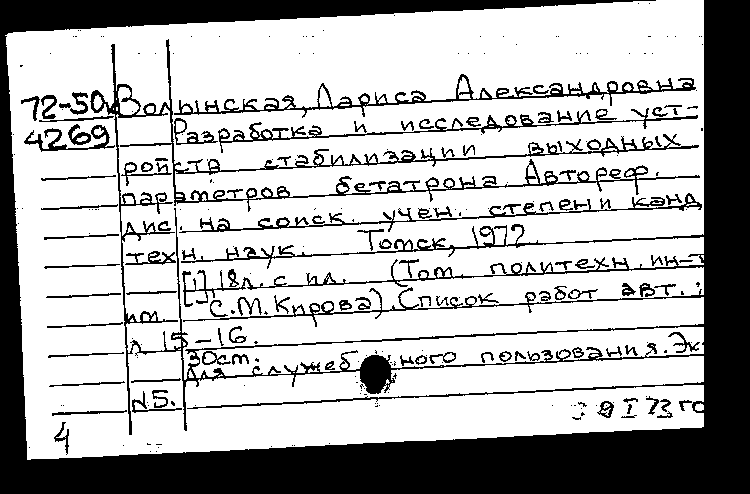 72-50
Волынская, Лариса Александровна
4269
Разработка и исследование уст-
ройств стабилизации выходных
параметров бетатрона. Автореф.
дис. на соиск. учен. степени канд
техн. наук. Томск, 1972.
[1], 18л. с ил. (Том. политехн. ин-т
им. С.М.Кирова). Список работ авт.:
л. 15-16.
30см.
Для служебного пользования. Эк-
N5.
9 I 73 го
4